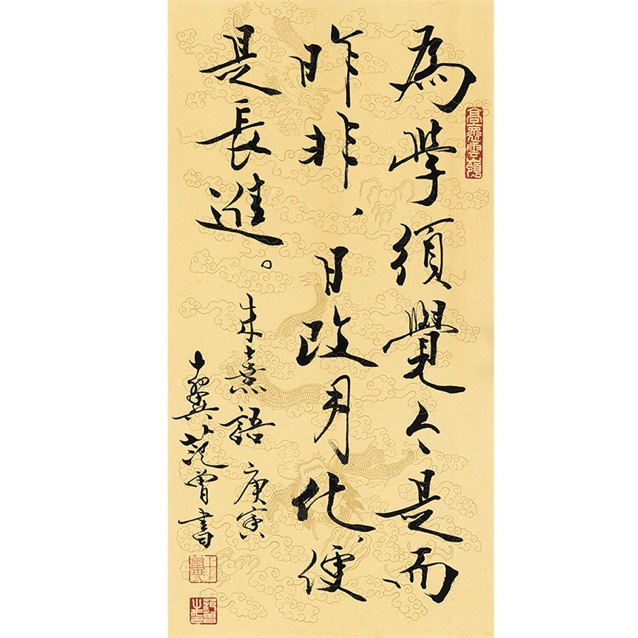 為學須覺今是而
昨非、日改月化便
是長進。
朱熹語 庚寅
十翼范曾書
十翼